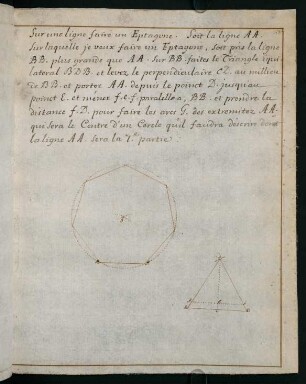 Sur une ligne faire un Eptagone. Soit la ligne AA.
Sur laquelle je veux faire un Eptagone, soit pris la ligne
BB. plus grande que AA. Sur BB. faites le Triangle equi
lateral BDB. et levez le perpendiculaire CD. au milieu
de BB. et portez AA. depuis le point D. jusqu'au
point E. et menez f.e.f paralelle a, BB. et prendre la
distance f.D. pour faire les arcs G. des extremitez AA.
qui sera le Centre d'un Cercle qu'il faudra descrire dont
la ligne AA. sera la 7.e partie.